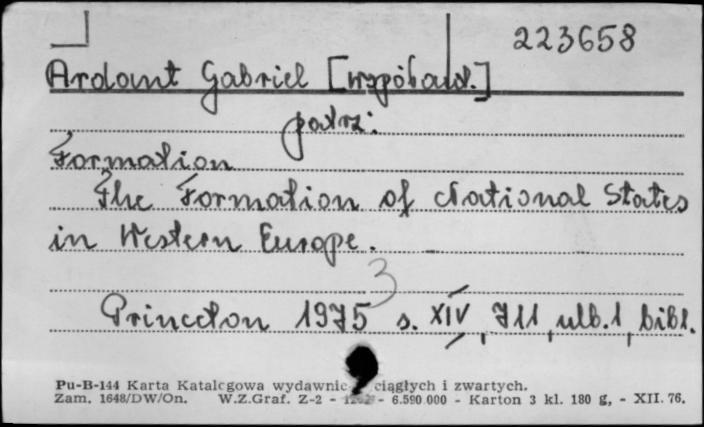 223658
Ardant Gabriel [współaut.]
patrz:
Formation
The Formation of National States
in Western Europe.
3
Princeton 1975 s. XIV, 711, ulb. 1, bibl.
Pu-B-144 Karta Katalogowa wydawnic ciągłych i zwartych.
Zam. 1648/DW/On. W.Z.Graf. Z-2 - - 6.590 000 - Karton 3 kl. 180 g, - XII. 76.